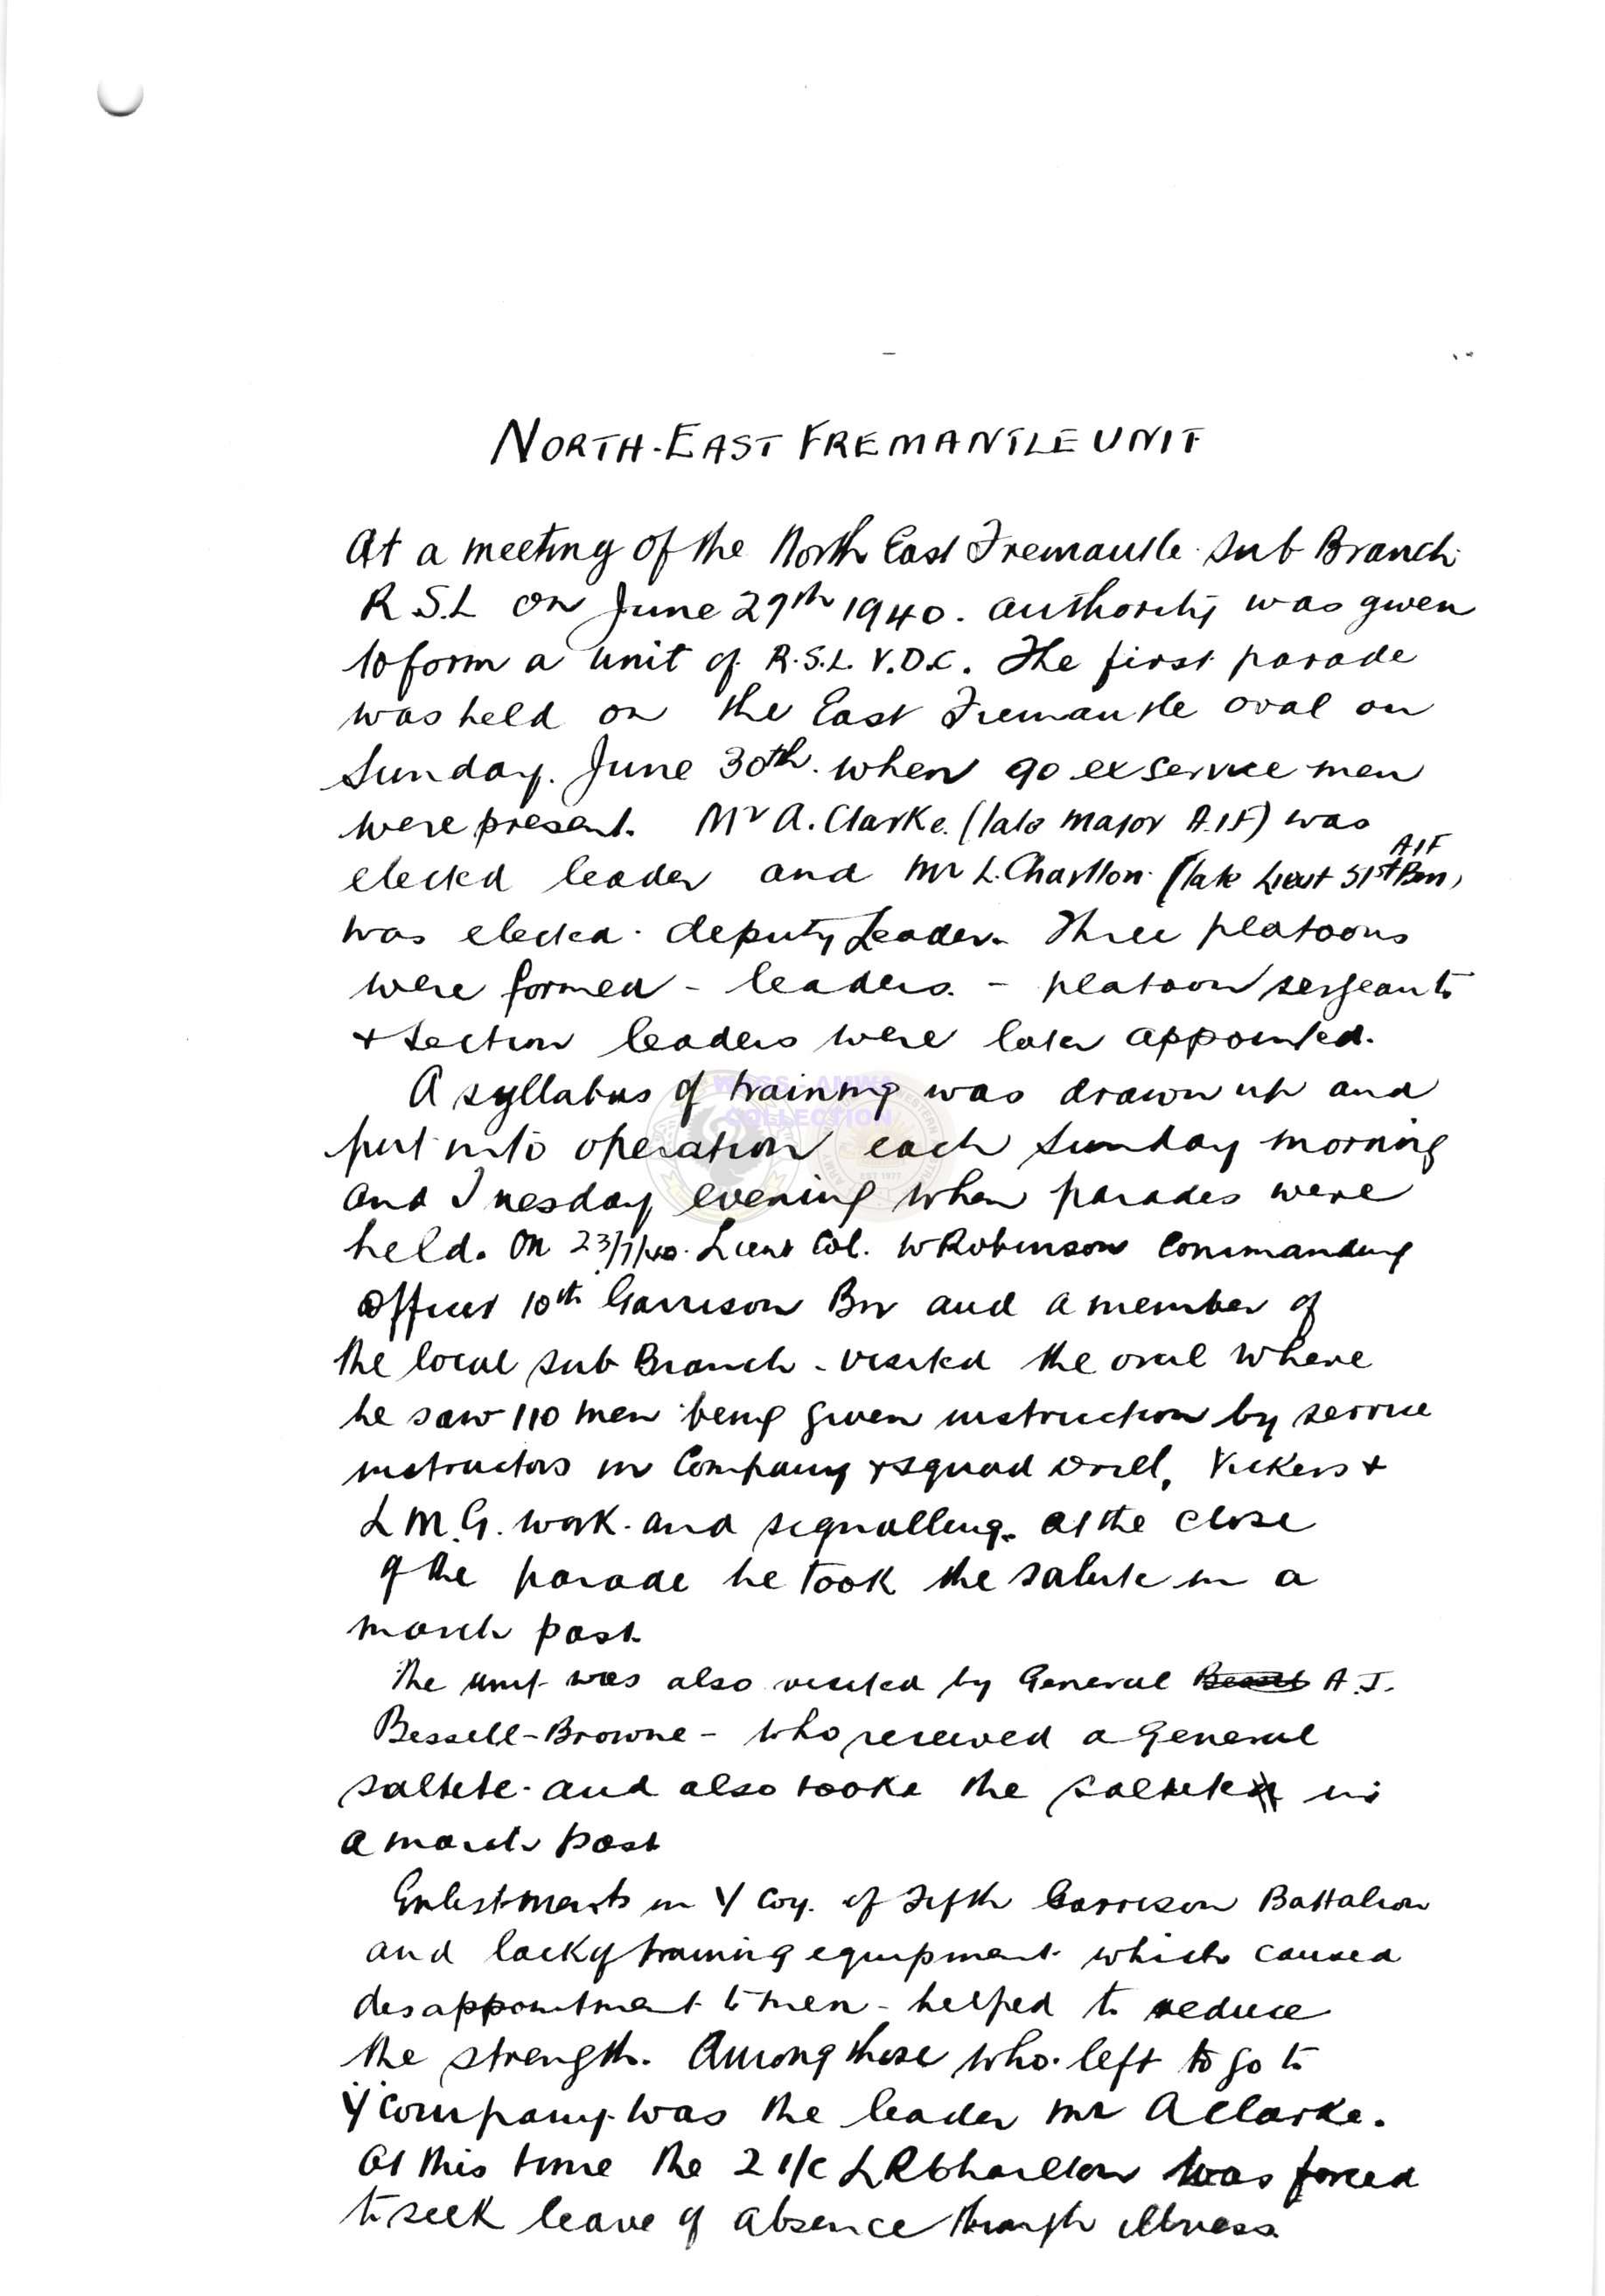 NORTH-EAST FREMANTLE UNIT
At a meeting of the North East Fremantle Sub Branch
R.S.L on June 27th 1940. authority was given
to form a unit of R.S.L. V.D.C. The first parade
was held on the East Fremantle oval on
Sunday. June 30th. when 90 ex service men
were present. Mr A. Clarke. (late Major A.I.F) was
elected leader and Mr L. Charlton (late Lieut 51st Bn AIF)
was elected deputy Leader. Three platoons
were formed - leaders. - platoon sergeants
+ section leaders were later appointed.
A syllabus of training was drawn up and
put into operation each Sunday morning
and Tuesday evening when parades were
held. On 23/7/40. Lieut Col. W Robinson Commanding
Officer 10th Garrison Bn and a member of
the local sub Branch - visited the oval where
he saw 110 men being given instruction by service
instructors in Company + squad drill, Vickers +
L.M.G. work. and signalling. At the close
of the parade he took the salute in a
march past.
The unit was also visited by General A.J.
Bessell-Browne - who received a General
salute. and also tooke the salute in
a march past
Enlistments in Y Coy. of Fifth Garrison Battalion
and lack of training equipment which caused
disappointment to men - helped to reduce
the strength. Among those who left to go to
'Y' Company was the leader Mr A Clarke.
At this time the 2 i/c L R Charlton was forced
to seek leave of absence through illness
WAGS - AMWA
COLLECTION